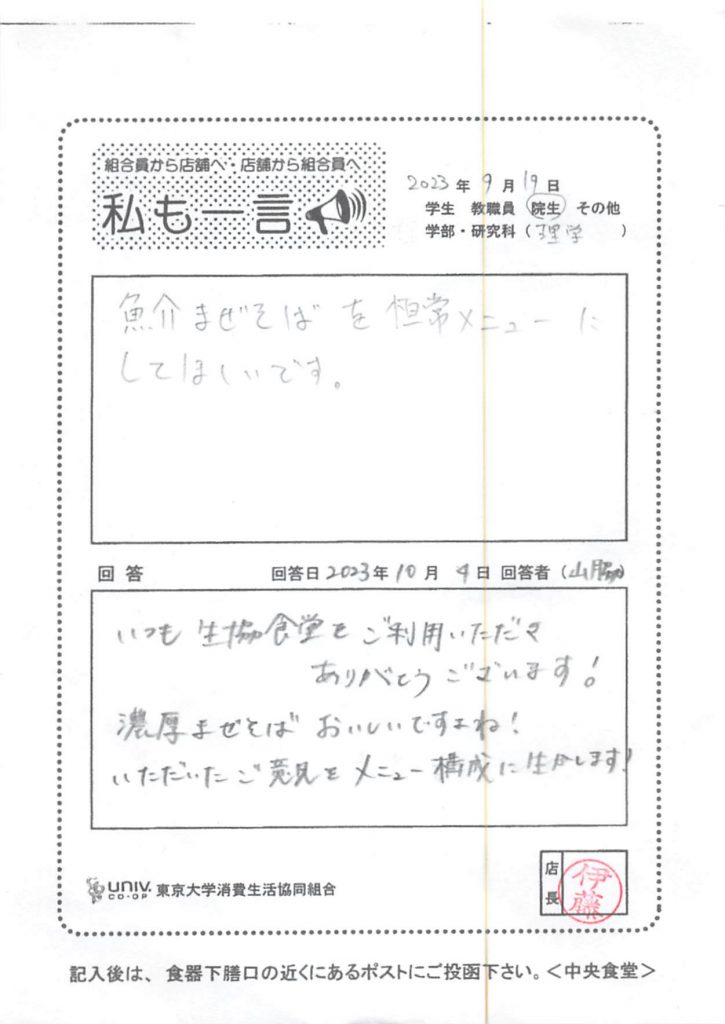 組合員から店舗へ・店舗から組合員へ
私も一言
2023年9月19日
学生 教職員 院生 その他
学部・研究科（理学）
魚介まぜそばを恒常メニューに
してほしいです。
回答 回答日2023年10月4日 回答者（山脇）
いつも生協食堂をご利用いただき
ありがとうございます！
濃厚まぜそばおいしいですよね！
いただいたご意見をメニュー構成に生かします！
UNIV. CO-OP 東京大学消費生活協同組合
店長 伊藤
記入後は、食器下膳口の近くにあるポストにご投函下さい。＜中央食堂＞